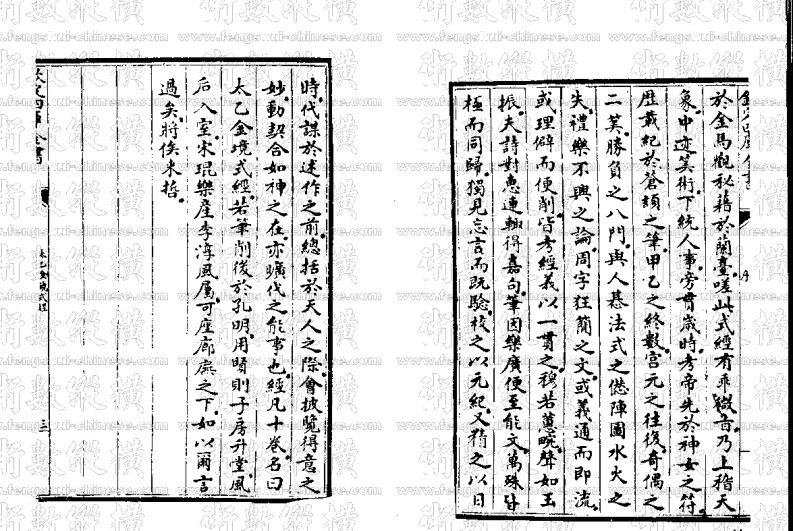 欽定四庫全書
序
於金馬觀秘籍於蘭臺嗟此式經有乖徽音乃上稽天
象中迹筭術下統人事旁貫歲時考帝先於神女之符
歴載紀於蒼頡之筆甲乙之終數宫元之往復奇偶之
二筭勝負之八門與人基法式之僁陣圖水火之
失禮樂不興之論周字狂簡之文或義通而即流
或理僻而便削皆考經義以一貫之稽若蕙畹聲如玉
振夫詩對惠連輙得嘉句筆因樂廣便至能文萬殊皆
極而同歸獨見忘言而既驗校之以元紀又稽之以日
時代謀於述作之前總括於天人之際會披覽得意之
妙動契合如神之在亦曠代之能事也經凡十卷名曰
太乙金鏡式經若筆削後於孔明用賢則子房升堂風
后入室宋琨樂産李淳風屬可座廊廡之下如以爾言
過矣將俟来哲
欽定四庫全書
太乙金鏡式經
三
術數縱橫
www.fengshui-chinese.com